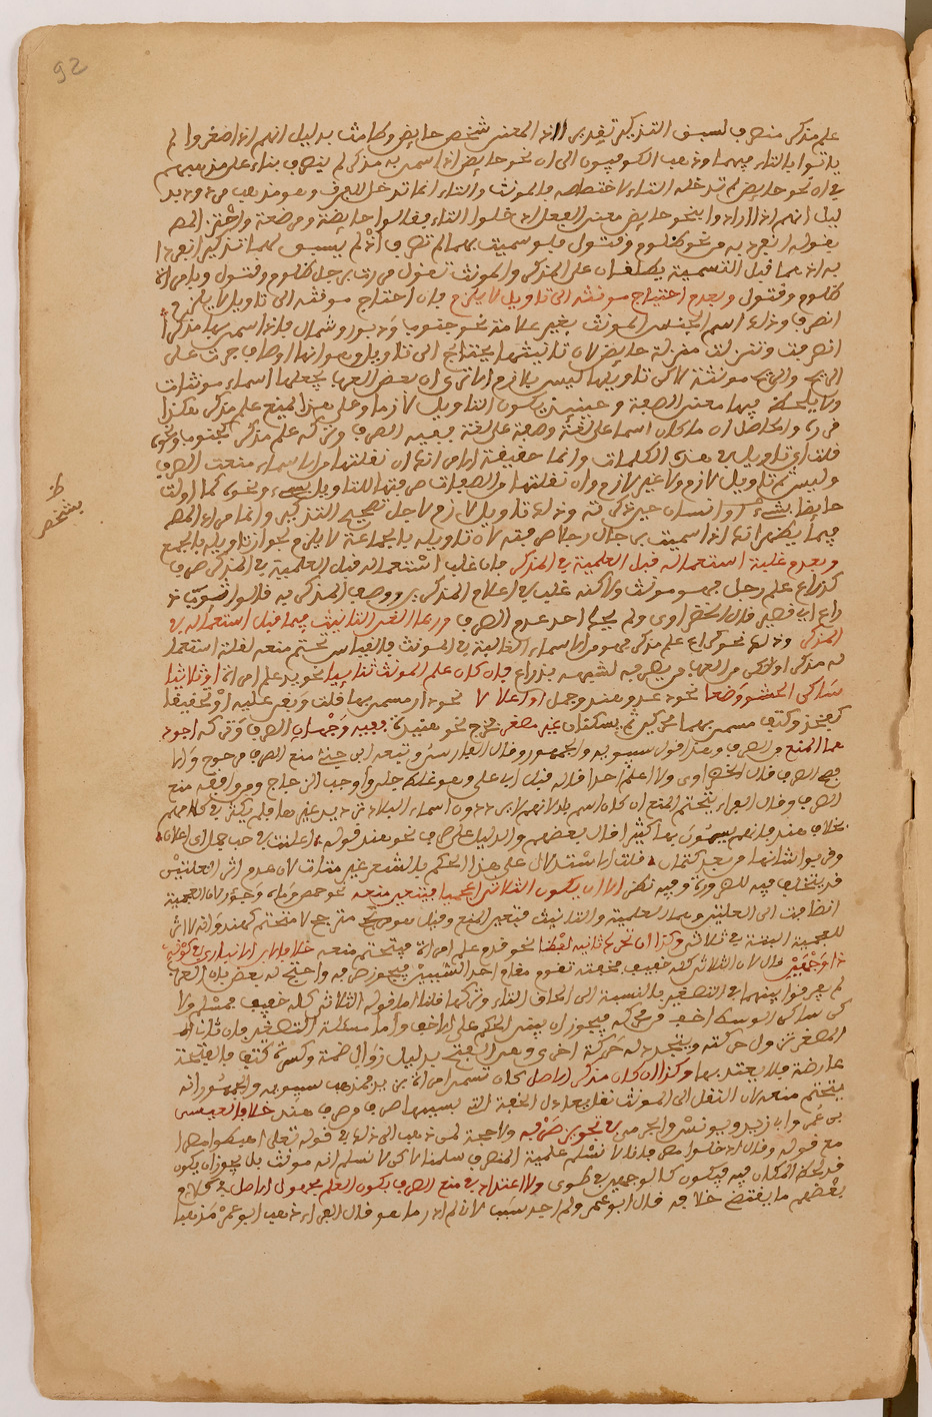 92
علم مذكر منصرف لسبق التذكير تقديرا اذ المعنى شخص حايض وطامث بدليل انهم اذا صغروا لم
ياتوا بالتاء فيهما وذهب الكوفيون الى ان نحو حايض اذا سمي به مذكر لم ينصرف بناء على مذهبهم
في ان نحو حايض لم تدخله التاء لاختصاصه بالمونث والتاء انما تدخل للفرق وهو مذهب مردود بد
ليل انهم اذا ارادوا بنحو حايض معنى الفعل ادخلوا التاء فقالوا حايضة ومرضعة واحترز المص
بقوله انفرد به من نحو ظلوم وقتول فلو سميت بهما لم تصرف اذ لم يسبق لهما تذكير انفردا
به اذ هما قبل التسمية يطلقان على المذكر والمونث تقول مررت برجل ظلوم وقتول وبامراة
ظلوم وقتول وبعدم احتياج مونثه الى تاويل لا يلزم فان احتاج مونثه الى تاويل لا يلزم
انصرف وذلك اسم الجنس المونث بغير علامة نحو جنوب ودبور وشمال فاذا سمي بها مذكرا
انصرفت وتنزلت منزلة حايض لان تانيثها يحتاج الى تاويل وهو انها اوصاف جرت على
الريح والريح مونثة لاكن تاويلها ليس بلازم الا ترى ان بعض العرب يجعلها اسماء مونثات
ولا يلحظ فيها معنى الصفة وحينيذ يكون التاويل لازما وعلى هذا المنع علم مذكر هكذا
قرره والحاصل ان ما كان اسما على لغة وصفة على لغة ففيه الصرف وتركه علم مذكر كجنوب ونحوه
قلت اي تاويل في هذه الكلمات وانما حقيقة الامر انك ان نقلتها من الاسماء منعت الصرف
وليس ثم تاويل لازم ولا غير لازم وان نقلتها من الصفات صرفتها للتاويل بشيء ونحوه كما اولت
حايضا بشيء او انسان حين ذكرته وذلك تاويل لازم لاجل تصحيح التذكير وانما مراد المص
فيما يظهر انك اذا سميت برجال رجلا صرفته لان تاويله بالجماعة لا يلزم لجواز تاويله بالجمع
وبعدم غلبة استعماله قبل العلمية في المذكر فان غلب استعماله قبل العلمية في المذكر صرف
كذراع علم رجل فهو مونث ولاكنه غلب في اعلام المذكر ووصف المذكر به فقالوا ثوب ذ
راع اي قصير قال الخضراوي ولم يحك احد عدم الصرف وربما الغي التانيث فيما قبل استعماله في
المذكر وذلك نحو كراع علم مذكر فهو من الاسماء الغالبة في المونث فالقياس تحتم منعه لقلة استعما
له مذكرا ولاكن من العرب من يصرفه لشبهه بذراع فان كان علم المونث ثنائيا نحو يد علم امراة او ثلاثيا
ساكن الحشو وضعا نحو دعد وهند وجمل او اعلالا نحو دار مسمى بها قلت ويقع عليه او تخفيفا
كفخذ وكتف مسمى بهما مخركين ثم يسكنان غير مصغر مخرج نحو هنيدة ففيه وجهان الصرف وتركه اجود
هما المنع والصرف وهذا قول سيبويه والجمهور وقال الفارسي وتبعه ابن جني منع الصرف مرجوح والا
فصح الصرف قال الخضراوي ولا اعلم احدا قاله قبل ابي علي وهو غلط جلي واوجب الزجاج ومن وافقه منع
الصرف وقال الفراء يتحتم المنع ان كان اسم بلد لانهم لا يرددون اسماء البلاد على غيرها فلم يكثر في كلامهم
بخلاف هند فانهم يسمون بها كثيرا قال بعضهم والدليل على صرف نحو هند قوله اعلنت في حب جمل اي اعلان
وقد بدا شانها من بعد كتمان قلت الاستدلال على هذا الحكم بالشعر غير متات لان عدم اثر العلتين
قد يتخلف فيه للضرورة وفيه نظر الا ان يكون الثلاثي اعجميا فيتعين منعه نحو حمص وماه وجور لان العجمية
انضافت الى العلتين وهما العلمية والتانيث فتعين المنع وقيل هو مترجح لا متحتم كهند وانه لا اثر
للعجمية البتة في ثلاثي وكذا ان تحرك ثانيه لفظا نحو قدم علم امراة فيتحتم منعه خلافا لابن الانباري في كونه
ذا وجهين قال لان الثلاثي كله خفيف فخفته تقوم مقام احد السببين فيجوز صرفه واحتج له بعض بان العرب
لم يفرقوا بينهما في التصغير بالنسبة الى الحاق التاء وتركها قلنا اما قوله الثلاثي كله خفيف فمسلم ولا
كن ساكن الوسط اخف من محركه فيجوز ان يبنى الحكم على الاخف واما مسئلة التصغير فان ثاني
المصغر تزول حركته ويتجدد له حركة اخرى وهي الفتح بدليل زوال ضمة وكسرة كتف بالفتحة
عارضة فلا يعتد بها وكذا ان كان مذكر الاصل كان تسمي امراة بزيد مذهب سيبويه والجمهور انه
يتحتم منعه لان النقل الى المونث ثقل يعادل الخفة التي بسببها صرف من صرف هند خلافا لعيسى
بن عمر وابي زيد ويونس والجرمي في تجويز صرفه ولا حجة لمن ذهب الى ذلك في قوله تعلى اهبطوا مصرا
مع قوله وقال ادخلوا مصر فانا لا نسلم علمية المنصرف سلمنا لاكن لا نسلم انه مونث بل يجوز ان يكون
قد لحظ المكان فيه فيكون كالوجهين في طوى ولا اعتداد في منع الصرف بكون العلم مجهول الاصل في كلام
بعضهم ما يقتضي خلافه قال ابو عمر ولم اجد سبب لاني لم ادر ما هو قال الفراء ذهب ابو عمرو مذهبا
ظ
بشخص